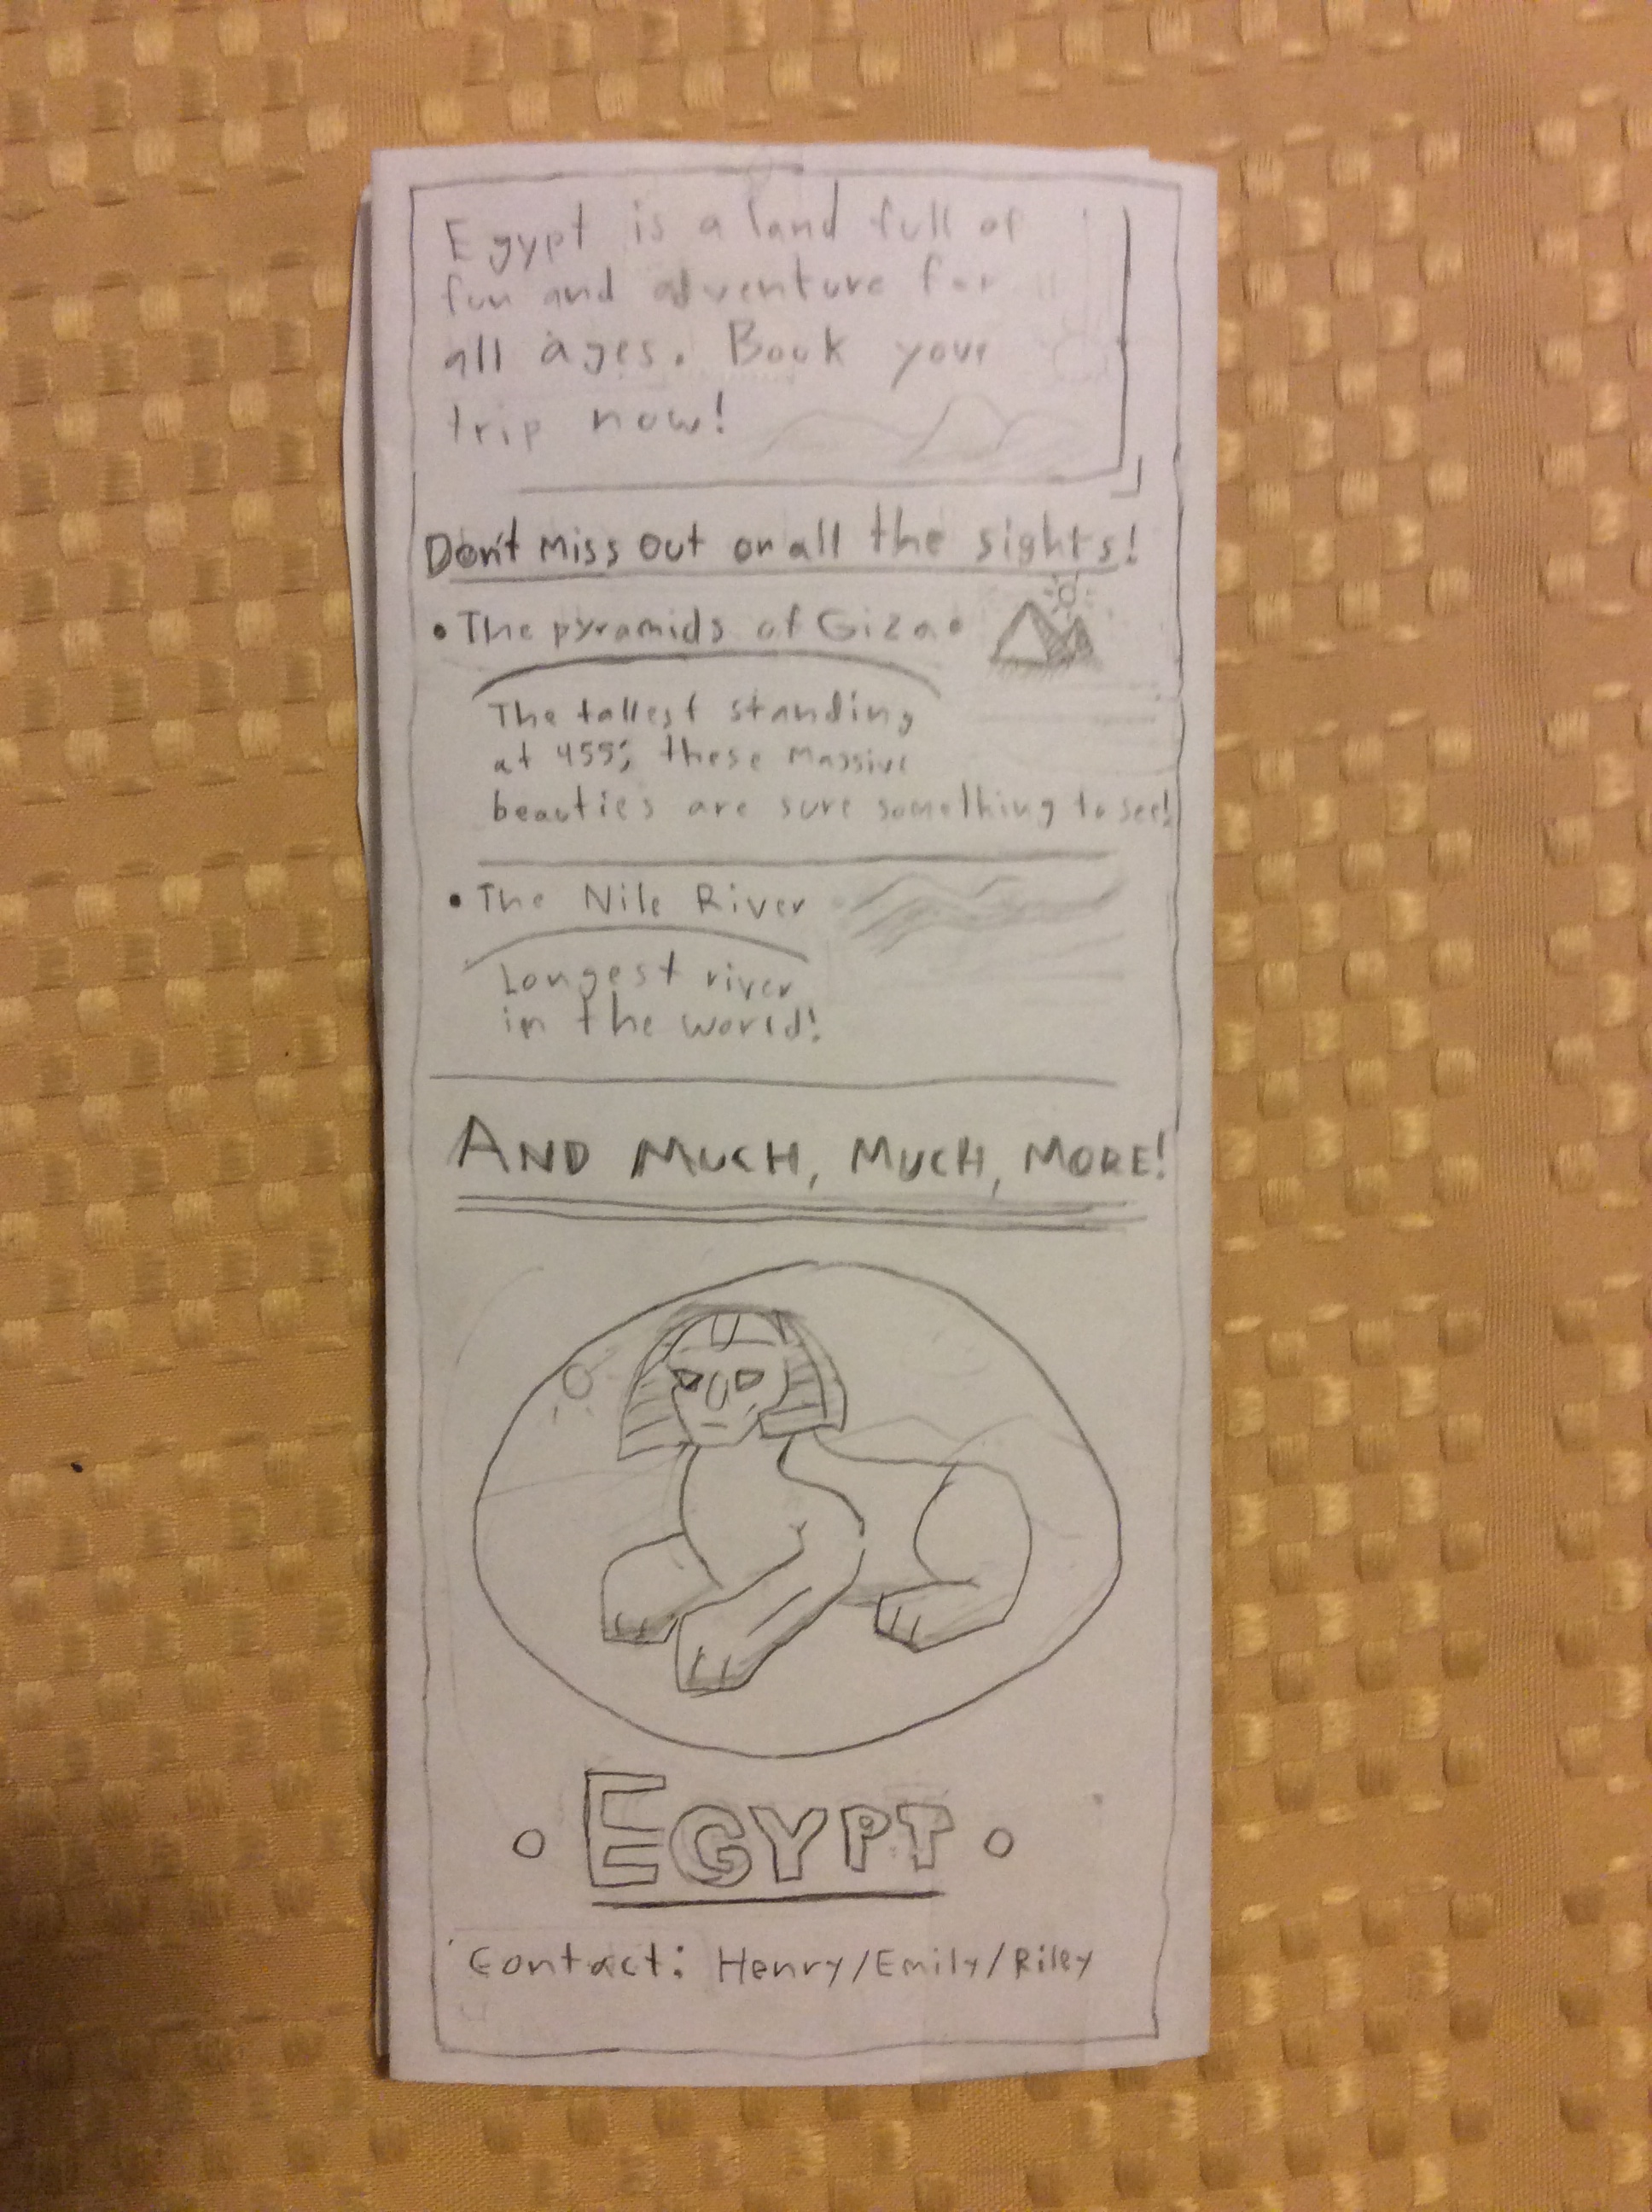 Egypt is a land full of
fun and adventure for
all ages. Book your
trip now!
Don't miss out on all the sights!
• The pyramids of Giza •
The tallest standing
at 455', these massive
beauties are sure something to see!
• The Nile River
Longest river
in the world!
AND MUCH, MUCH, MORE!
EGYPT
Contact: Henry/Emily/Riley